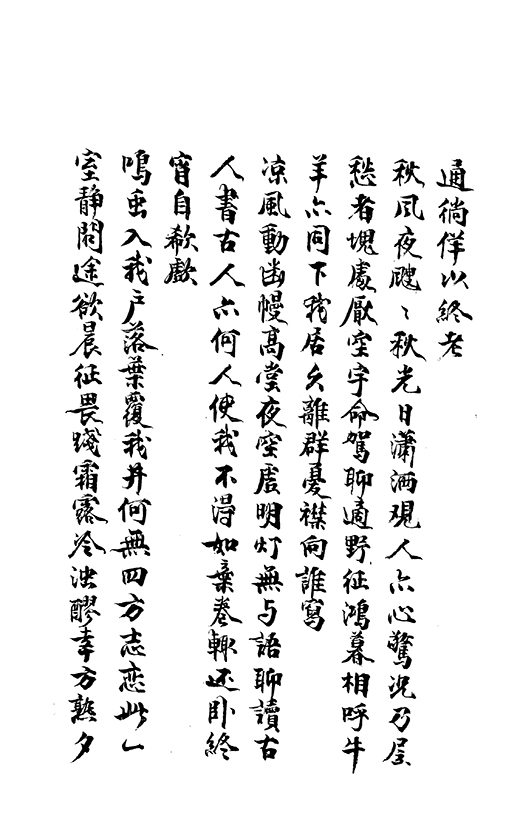 通徜徉以終老
秋風夜颼〻秋光日瀟洒現人亦心驚況乃居
愁者塊處厭空宇命駕聊適野征鴻暮相呼牛
羊亦同下居久離群憂襟向誰寫
涼風動幽幔高堂夜空居明灯無与語聊讀古
人書古人亦何人使我不得如棄卷輙还卧終
宵自欷歔
鳴虫入我戶落葉覆我井何無四方志恋此一
室靜問途欲晨征畏踐霜露冷濁醪幸方熟夕